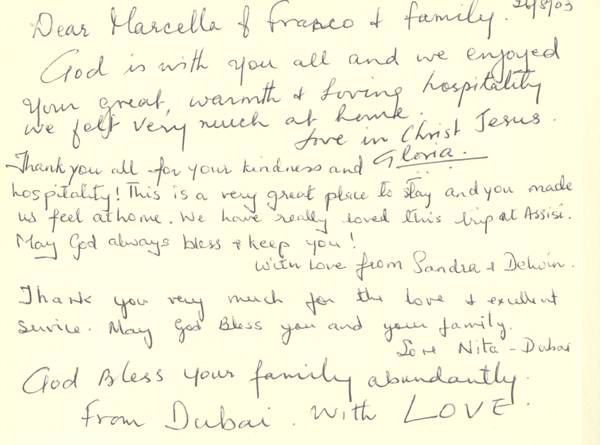 Dear Marcella & Franco & family. 26/8/03
God is with you all and we enjoyed
your great, warmth & loving hospitality
we felt very much at home.
Love in Christ Jesus.
Gloria.
Thank you all for your kindness and
hospitality! This is a very great place to stay and you made
us feel at home. We have really loved this trip at Assisi.
May God always bless & keep you!
With love from Sandra &
Thank you very much for the love & excellent
service. May God Bless you and your family.
Love Nita - Dubai
God Bless your family abundantly.
From Dubai. With LOVE.